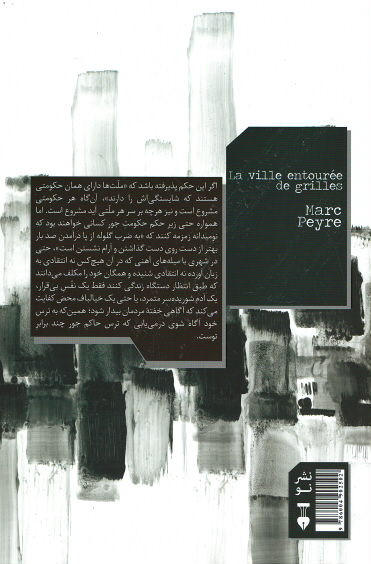 La ville entourée
de grilles
Marc
Peyre
اگر این حکم پذیرفته باشد که «ملت‌ها دارای همان حکومتی
هستند که شایستگی‌اش را دارند»، آن‌گاه هر حکومتی
مشروع است و نیز هرچه بر سر هر ملتی آید مشروع است. اما
همواره حتی زیر حکم حکومت جور کسانی خواهند بود که
نومیدانه زمزمه کنند که «به ضرب گلوله از پا درآمدن صد بار
بهتر از دست روی دست گذاشتن و آرام نشستن است»، حتی
در شهری با میله‌های آهنی که در آن هیچ‌کس نه انتقادی به
زبان آورده نه انتقادی شنیده و همگان خود را مکلف می‌دانند
که طبق انتظار دستگاه زندگی کنند فقط یک نفس بی‌قرار،
یک آدم شوریده‌سر متمرد، یا حتی یک خیالباف محض کفایت
می‌کند که آگاهی خفتهٔ مردمان بیدار شود؛ همین‌که به ترس
خود آگاه شوی درمی‌یابی که ترس حاکم جور چند برابر
توست.
نشر
نو
9 786004 902502